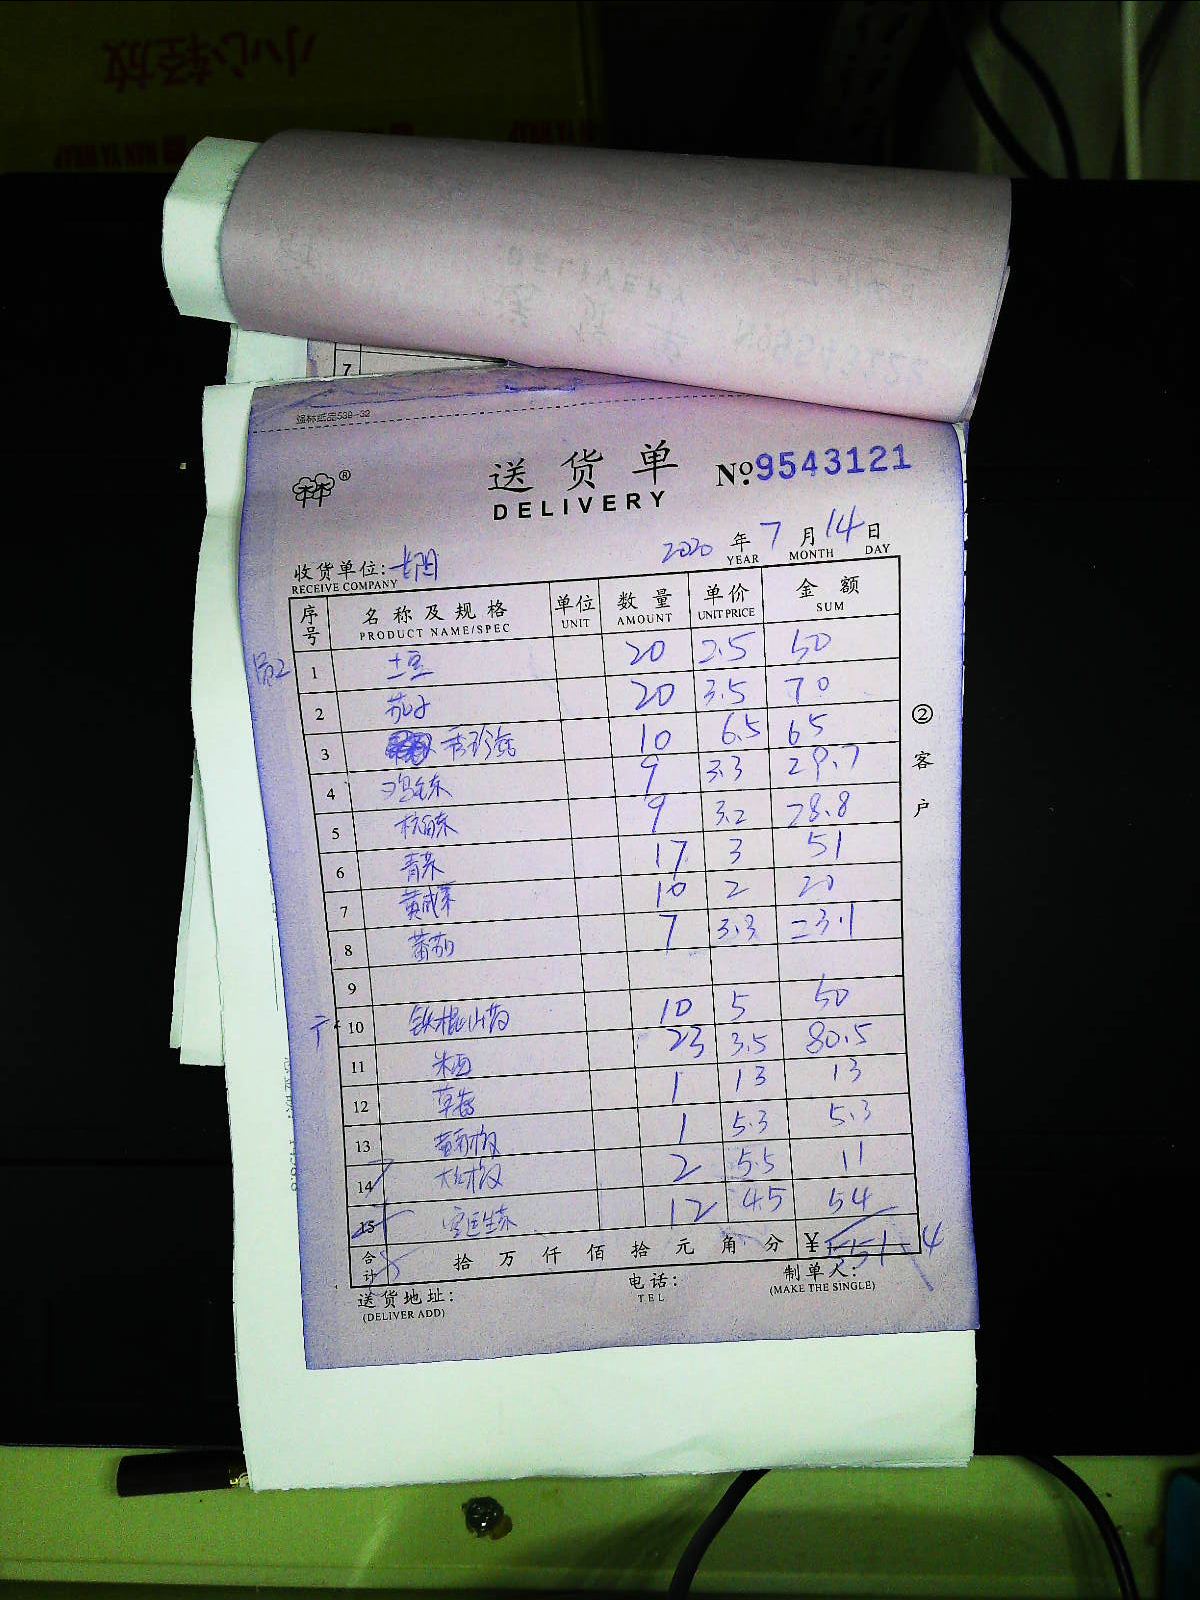 小心轻放
7
强林纸品539-32
送货单 №9543121
DELIVERY
2020 年 7 月 14 日
YEAR MONTH DAY
收货单位:
RECEIVE COMPANY
序号 名称及规格 单位 数量 单价 金额
PRODUCT NAME/SPEC UNIT AMOUNT UNIT PRICE SUM
员工 1 土豆 20 2.5 50
2 茄子 20 3.5 70
3 杏珍菇 10 6.5 65
4 9 3.3 29.7
5 9 3.2 28.8
6 青菜 17 3 51
7 10 2 20
8 蕃茄 7 3.3 23.1
9
10 铁棍山药 10 5 50
11 23 3.5 80.5
12 草莓 1 13 13
13 1 5.3 5.3
14 大红椒 2 5.5 11
15 12 4.5 54
合计 拾 万 仟 佰 拾 元 角 分 ¥ 551.4
② 客户
送货地址: 电话: 制单人:
(DELIVER ADD) TEL (MAKE THE SINGLE)